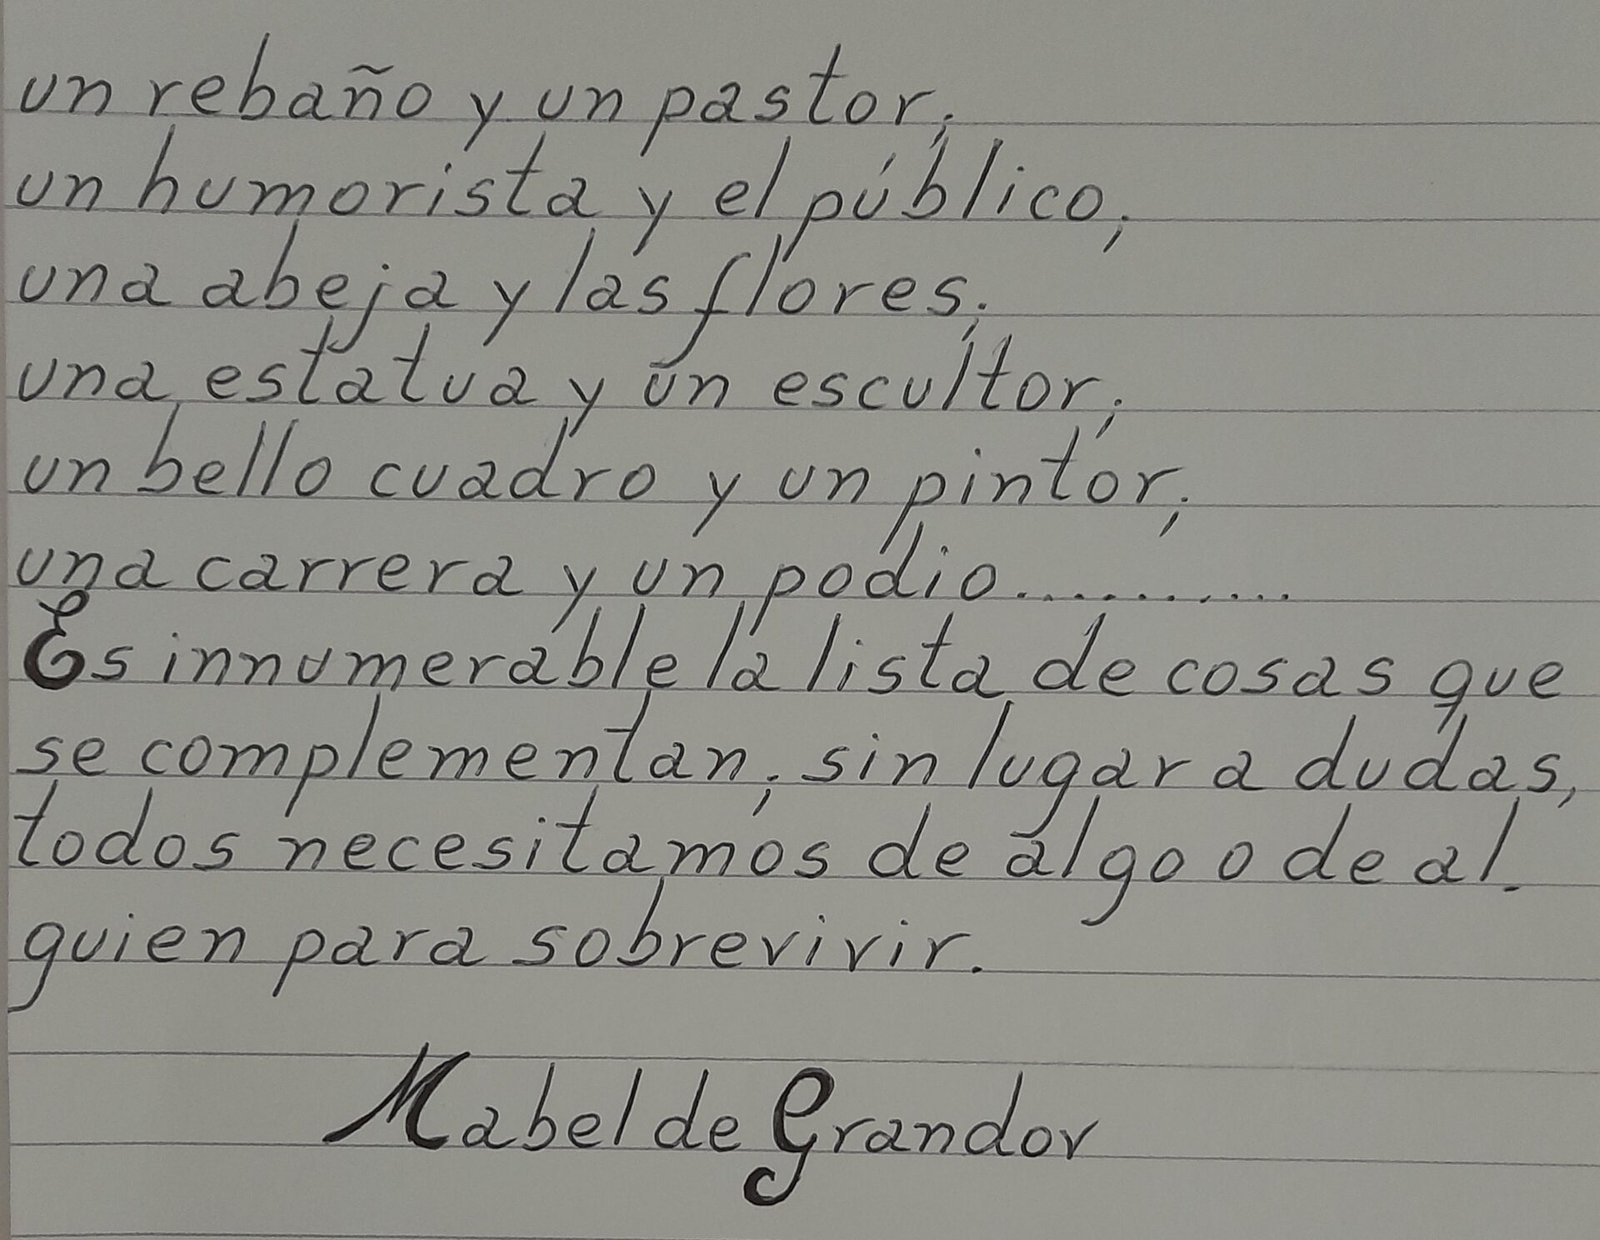 un rebaño y un pastor;
un humorista y el público;
una abeja y las flores;
una estatua y un escultor;
un bello cuadro y un pintor;
una carrera y un podio...........
Es innumerable la lista de cosas que
se complementan; sin lugar a dudas,
todos necesitamos de algo o de al.
guien para sobrevivir.
Mabel de Grandor